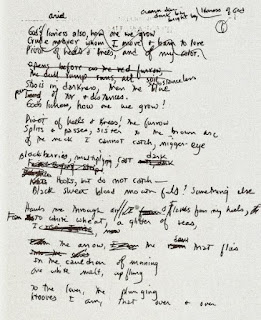 ariel
lioness of God
God's lioness also, how one we grow
Crude mover whom I move & burn to love
Pivot of heels & knees, and of my color.
Opens before us the red furrow
The dull rump runs, all substanceless
Stasis in darkness, then the blue
pour of tor & distances.
God's lioness, how one we grow!
Pivot of heels & knees! The furrow
Splits & passes, sister to the brown arc
Of the neck I cannot catch, nigger-eye
Blackberries, multiplying fast
Hooks, but do not catch —
Black sweet blood mouthfuls! Something else
Hauls me through air flakes from my heels,
to white wheat, a glitter of seas,
I now
the arrow, the dew that flies
In the cauldron of morning
One white melt, upflung
to the lover, the plunging
Hooves I am, that over & over